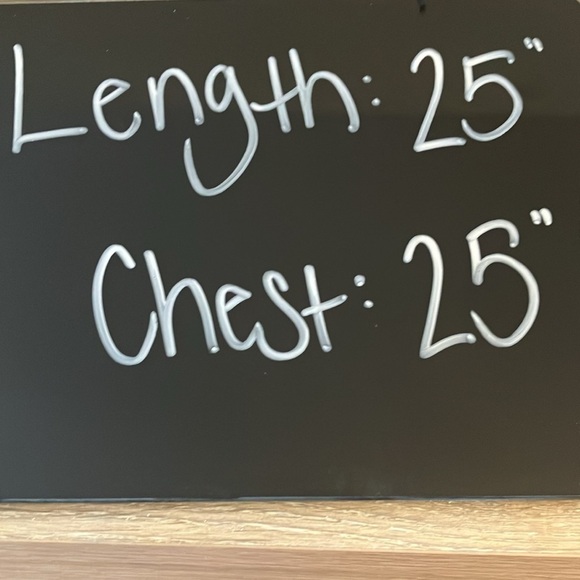 Length: 25"
Chest: 25"